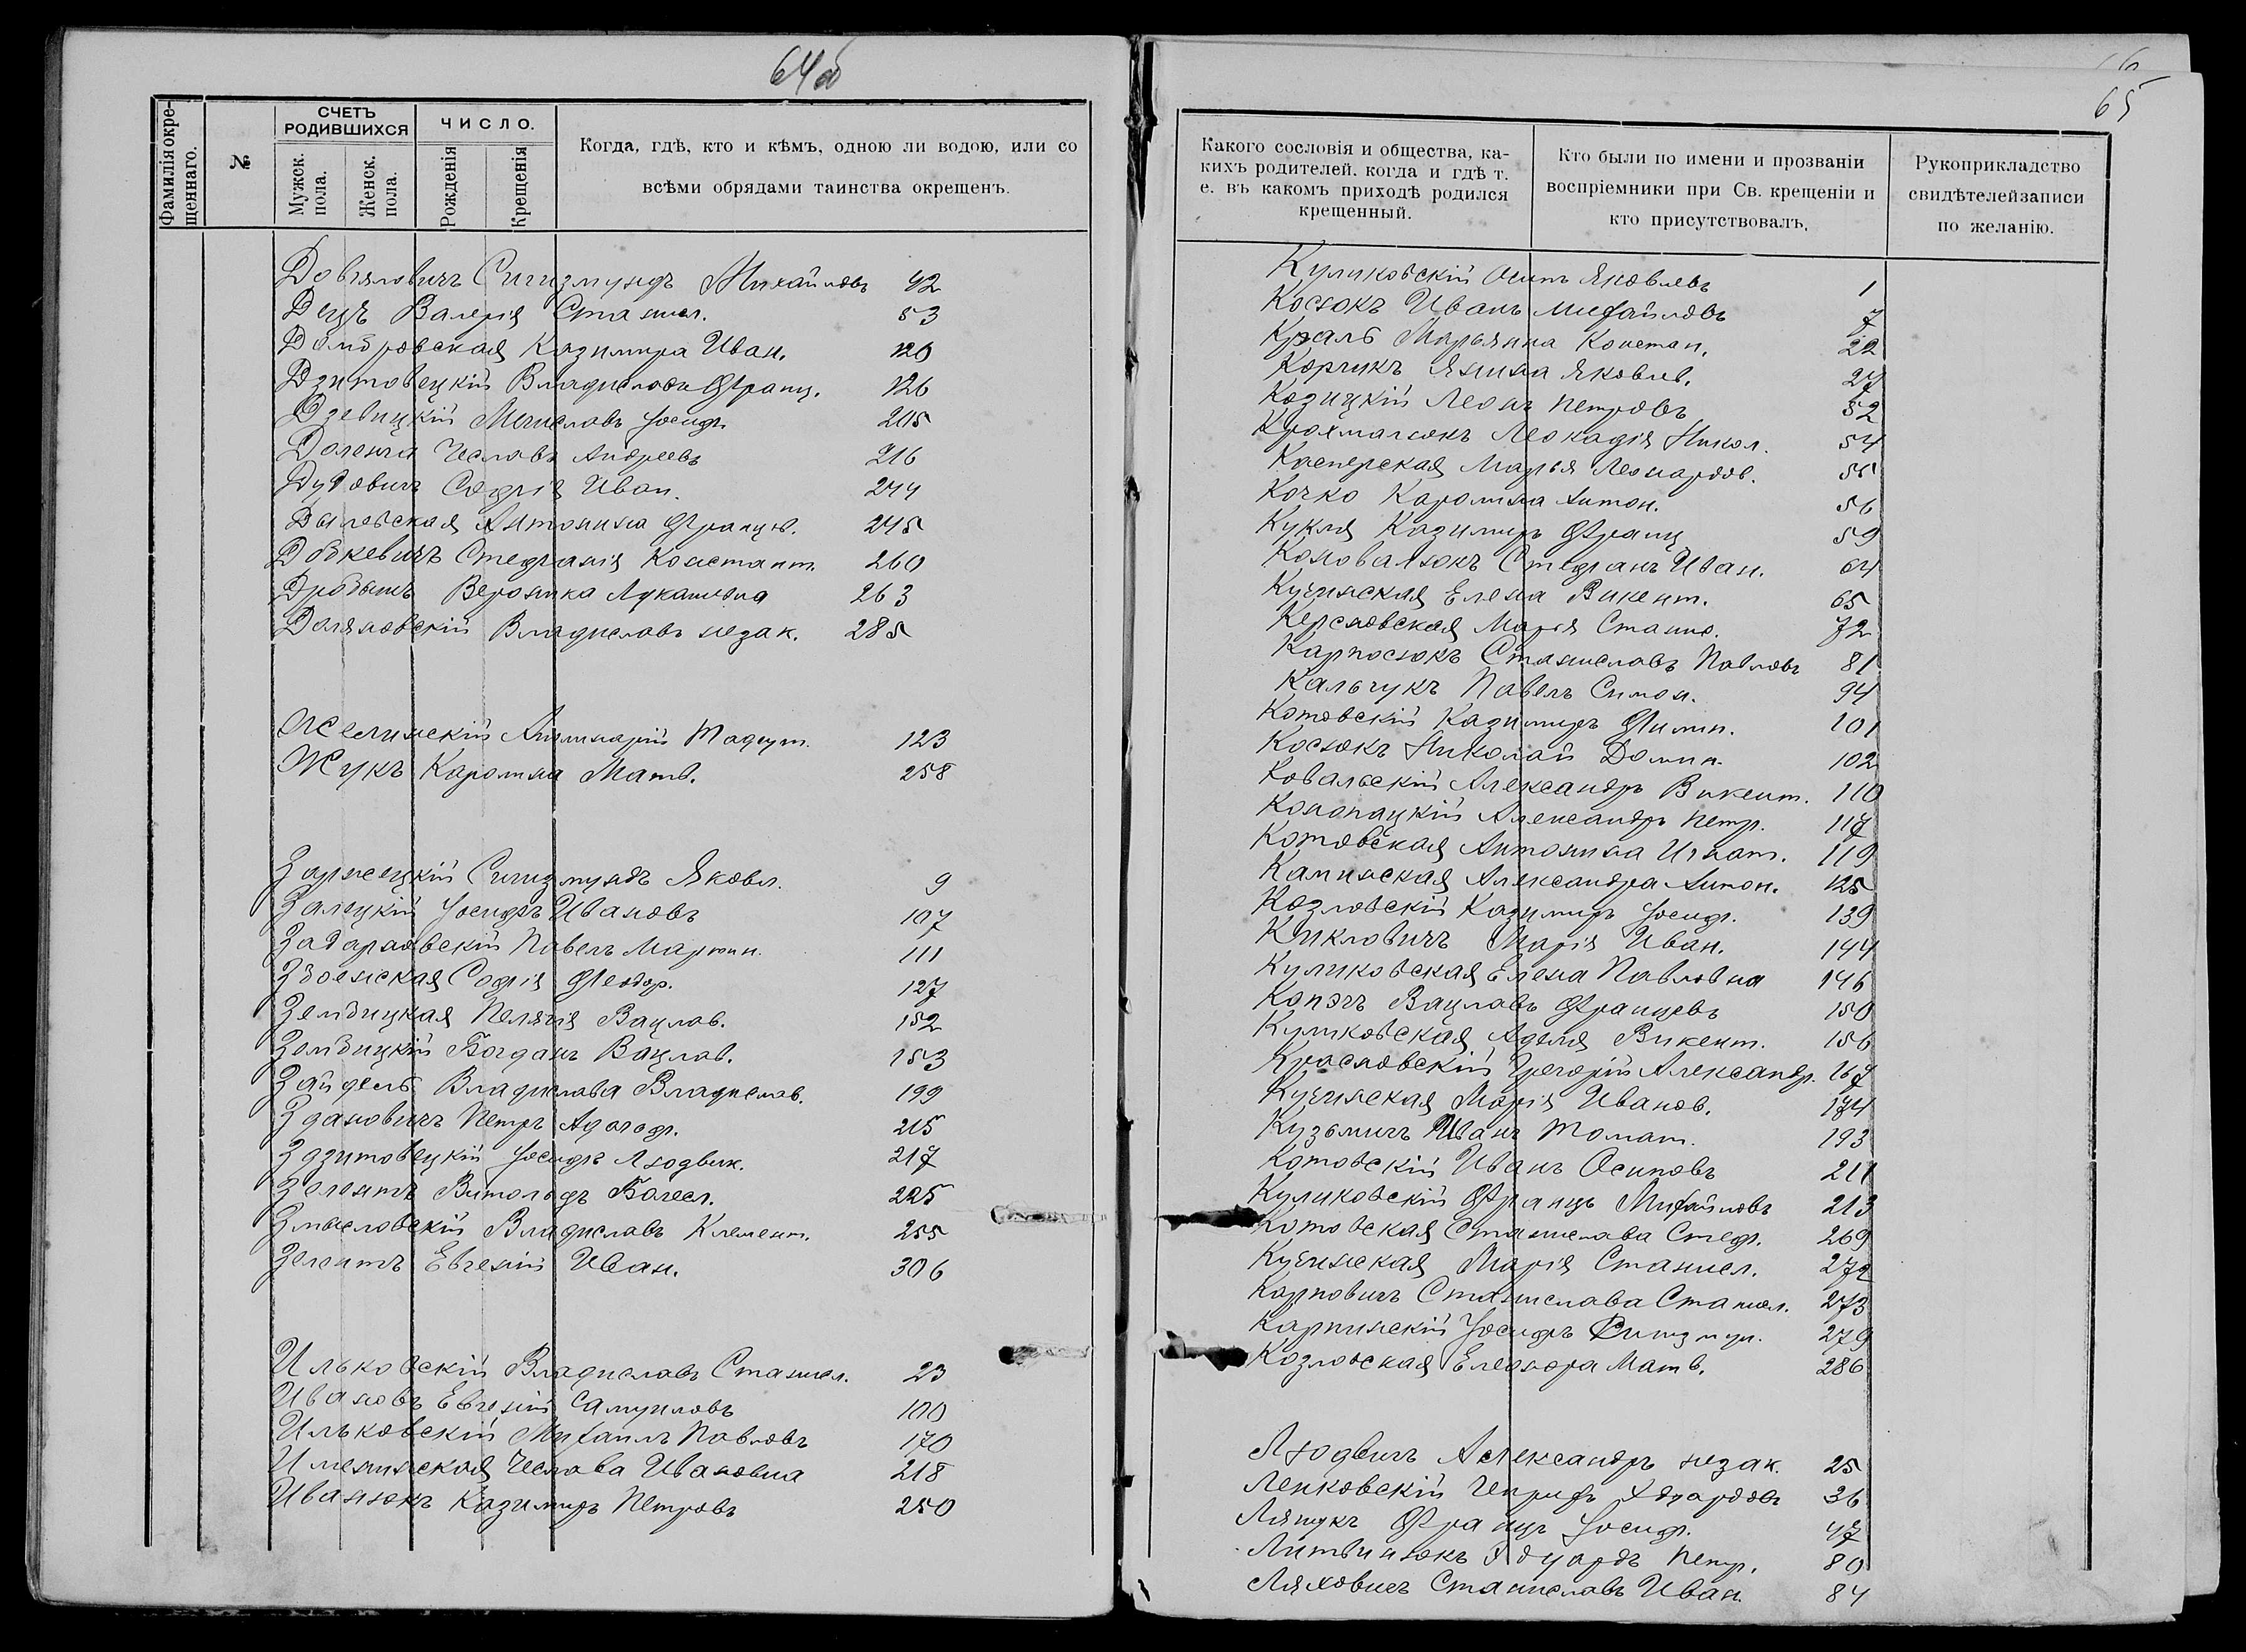 64об
Фамилія окрещеннаго.
№
СЧЕТЪ РОДИВШИХСЯ
Мужск. пола.
Женск. пола.
ЧИСЛО.
Рожденія
Крещенія
Когда, гдѣ, кто и кѣмъ, одною ли водою, или со
всѣми обрядами таинства окрещенъ.
Довяловичъ Сигизмундъ Михайловъ 42
Децъ Валерія Станисл. 53
Домбровская Казимира Иван. 120
Дзитовецкій Владиславъ Франц. 126
Дзевицкій Мечиславъ Іосифъ 205
Доленга Чеславъ Андреевъ 216
Дудовичъ Софія Иван. 244
Дылевская Антонина Францов. 245
Добкевичъ Стефанія Констант. 260
Дробышъ Вероника Лукашовна 263
Доляновскій Владиславъ незак. 285
Желинскій Аполинарій Тадеуш. 123
Жукъ Каролина Матв. 258
Заржецкій Сигизмундъ Яковл. 9
Залецкій Іосифъ Ивановъ 107
Забарновскій Павелъ Мартин. 111
Збоенская Софія Феодор. 127
Зембицкая Пелагія Вацлав. 152
Зембицкій Богданъ Вацлав. 153
Зайдель Владислава Владислав. 199
Здановичъ Петръ Адольф. 215
Здзитовецкій Іосифъ Людвик. 217
Зелентъ Витольдъ Болесл. 225
Змысловскій Владиславъ Клемент. 255
Зелентъ Евгеній Иван. 306
Ильковскій Владиславъ Станисл. 23
Ивановъ Евгеній Самуиловъ 100
Ильковскій Михаилъ Павловъ 170
Именинская Чеслава Ивановна 218
Иванюкъ Казимиръ Петровъ 250
65
Какого сословія и общества, ка-
кихъ родителей, когда и гдѣ т.
е. въ какомъ приходѣ родился
крещенный.
Кто были по имени и прозваніи
воспріемники при Св. крещеніи и
кто присутствовалъ.
Рукоприкладство
свидѣтелей записи
по желанію.
Куликовскій Осипъ Яковлевъ 1
Косюкъ Иванъ Михайловъ 7
Краль Марьянна Констан. 22
Корчикъ Янина Яковлев. 27
Козицкій Леонъ Петровъ 52
Крахмалюкъ Леокадія Никол. 54
Касперская Марья Леонардов. 55
Кочко Каролина Антон. 56
Кукля Казимиръ Франц 59
Коновалюкъ Стефанъ Иван. 64
Кучинская Елена Викент. 65
Керсновская Марія Станис. 72
Карпосюкъ Станиславъ Павловъ 81
Кальчукъ Павелъ Симон. 94
Котовскій Казимиръ Филип. 101
Косюкъ Николай Домин. 102
Ковальскій Александръ Викент. 110
Конопацкій Александръ Петр. 117
Котовская Антонина Игнат. 119
Каминская Александра Антон. 125
Козловскій Казимиръ Іосиф. 139
Кикловичъ Марія Иван. 144
Куликовская Елена Павловна 146
Копэчъ Вацлавъ Францевъ 150
Куликовская Аделя Викент. 156
Красновскій Григорій Александр. 167
Кучинская Марія Иванов. 174
Кузьмичъ Иванъ Томаш. 193
Котовскій Иванъ Осиповъ 211
Куликовскій Францъ Михайловъ 213
Котовская Станислава Стеф. 269
Кучинская Марія Станисл. 272
Карповичъ Станислава Станисл. 273
Карпинскій Іосифъ Сигизмун. 279
Козловская Елеонора Матв. 286
Людвигъ Александръ незак. 25
Ленковскій Генрихъ Эдуардовъ 36
Ляшукъ Францъ Іосиф. 47
Литвинюкъ Эдуардъ Петр. 80
Ляховичъ Станиславъ Иван. 84